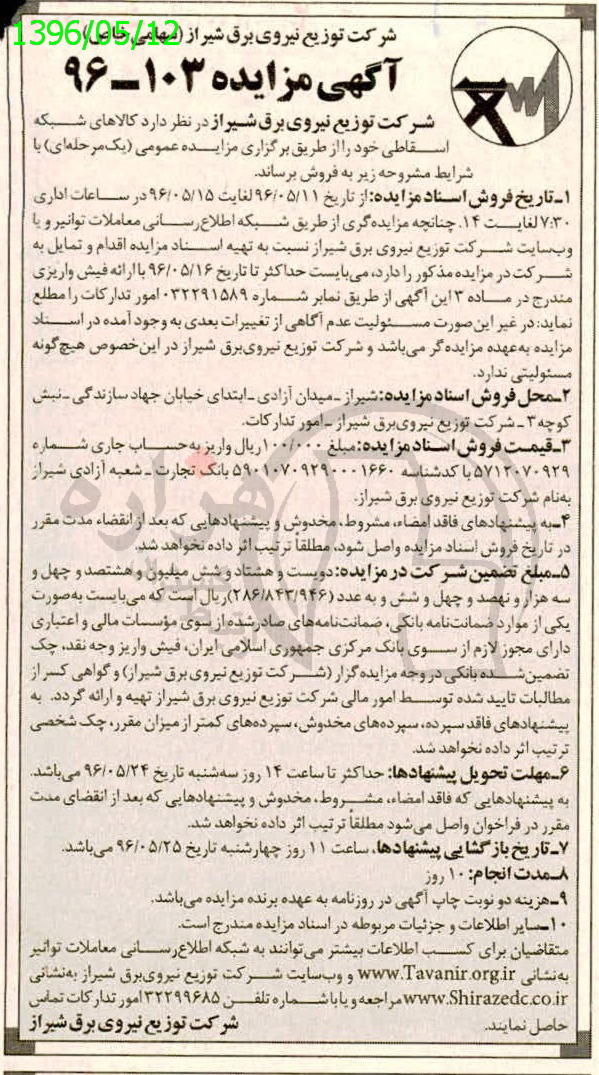 1396/05/12
شرکت توزیع نیروی برق شیراز (سهامی خاص)
آگهی مزایده ۱۰۳-۹۶
شرکت توزیع نیروی برق شیراز در نظر دارد کالاهای شبکه
اسقاطی خود را از طریق برگزاری مزایده عمومی (یک‌مرحله‌ای) با
شرایط مشروحه زیر به فروش برساند.
۱-تاریخ فروش اسناد مزایده: از تاریخ ۹۶/۰۵/۱۱ لغایت ۹۶/۰۵/۱۵ در ساعات اداری
۷:۳۰ لغایت ۱۴. چنانچه مزایده‌گری از طریق شبکه اطلاع‌رسانی معاملات توانیر و یا
وب‌سایت شرکت توزیع نیروی برق شیراز نسبت به تهیه اسناد مزایده اقدام و تمایل به
شرکت در مزایده مذکور را دارد، می‌بایست حداکثر تا تاریخ ۹۶/۰۵/۱۶ با ارائه فیش واریزی
مندرج در ماده ۳ این آگهی از طریق نمابر شماره ۰۳۲۲۹۱۵۸۹ امور تدارکات را مطلع
نماید: در غیر این‌صورت مسئولیت عدم آگاهی از تغییرات بعدی به وجود آمده در اسناد
مزایده به‌عهده مزایده‌گر می‌باشد و شرکت توزیع نیروی‌برق شیراز در این‌خصوص هیچ‌گونه
مسئولیتی ندارد.
۲-محل فروش اسناد مزایده: شیراز -میدان آزادی -ابتدای خیابان جهاد سازندگی -نبش
کوچه ۳ -شرکت توزیع نیروی‌برق شیراز -امور تدارکات.
۳-قیمت فروش اسناد مزایده: مبلغ ۱۰۰/۰۰۰ ریال واریز به‌حساب جاری شماره
۵۷۱۲۰۷۰۹۲۹ با کدشناسه ۵۹۰۱۰۷۰۹۲۹۰۰۰۱۶۶۰ بانک تجارت - شعبه آزادی شیراز
به‌نام شرکت توزیع نیروی برق شیراز.
۴-به پیشنهادهای فاقد امضاء، مشروط، مخدوش و پیشنهادهایی که بعد از انقضاء مدت مقرر
در تاریخ فروش اسناد مزایده واصل شود، مطلقاً ترتیب اثر داده نخواهد شد.
۵-مبلغ تضمین شرکت در مزایده: دویست و هشتاد و شش میلیون و هشتصد و چهل و
سه هزار و نهصد و چهل و شش و به عدد (۲۸۶/۸۴۳/۹۴۶) ریال است که می‌بایست به‌صورت
یکی از موارد ضمانت‌نامه بانکی، ضمانت‌نامه‌های صادرشده از سوی مؤسسات مالی و اعتباری
دارای مجوز لازم از سوی بانک مرکزی جمهوری اسلامی ایران، فیش واریز وجه نقد، چک
تضمین‌شده بانکی در وجه مزایده‌گزار (شرکت توزیع نیروی برق شیراز) و گواهی کسر از
مطالبات تایید شده توسط امور مالی شرکت توزیع نیروی برق شیراز تهیه و ارائه گردد. به
پیشنهادهای فاقد سپرده، سپرده‌های مخدوش، سپرده‌های کمتر از میزان مقرر، چک شخصی
ترتیب اثر داده نخواهد شد.
۶-مهلت تحویل پیشنهادها: حداکثر تا ساعت ۱۴ روز سه‌شنبه تاریخ ۹۶/۰۵/۲۴ می‌باشد.
به پیشنهادهایی که فاقد امضاء، مشروط، مخدوش و پیشنهادهایی که بعد از انقضای مدت
مقرر در فراخوان واصل می‌شود مطلقا ترتیب اثر داده نخواهد شد.
۷-تاریخ بازگشایی پیشنهادها، ساعت ۱۱ روز چهارشنبه تاریخ ۹۶/۰۵/۲۵ می‌باشد.
۸-مدت انجام: ۱۰ روز
۹-هزینه دو نوبت چاپ آگهی در روزنامه به عهده برنده مزایده می‌باشد.
۱۰-سایر اطلاعات و جزئیات مربوطه در اسناد مزایده مندرج است.
متقاضیان برای کسب اطلاعات بیشتر می‌توانند به شبکه اطلاع‌رسانی معاملات توانیر
به‌نشانی www.Tavanir.org.ir و وب‌سایت شرکت توزیع نیروی‌برق شیراز به‌نشانی
www.Shirazedc.co.ir مراجعه و یا با شماره تلفن ۳۲۲۹۹۶۸۵ امور تدارکات تماس
حاصل نمایند. شرکت توزیع نیروی برق شیراز